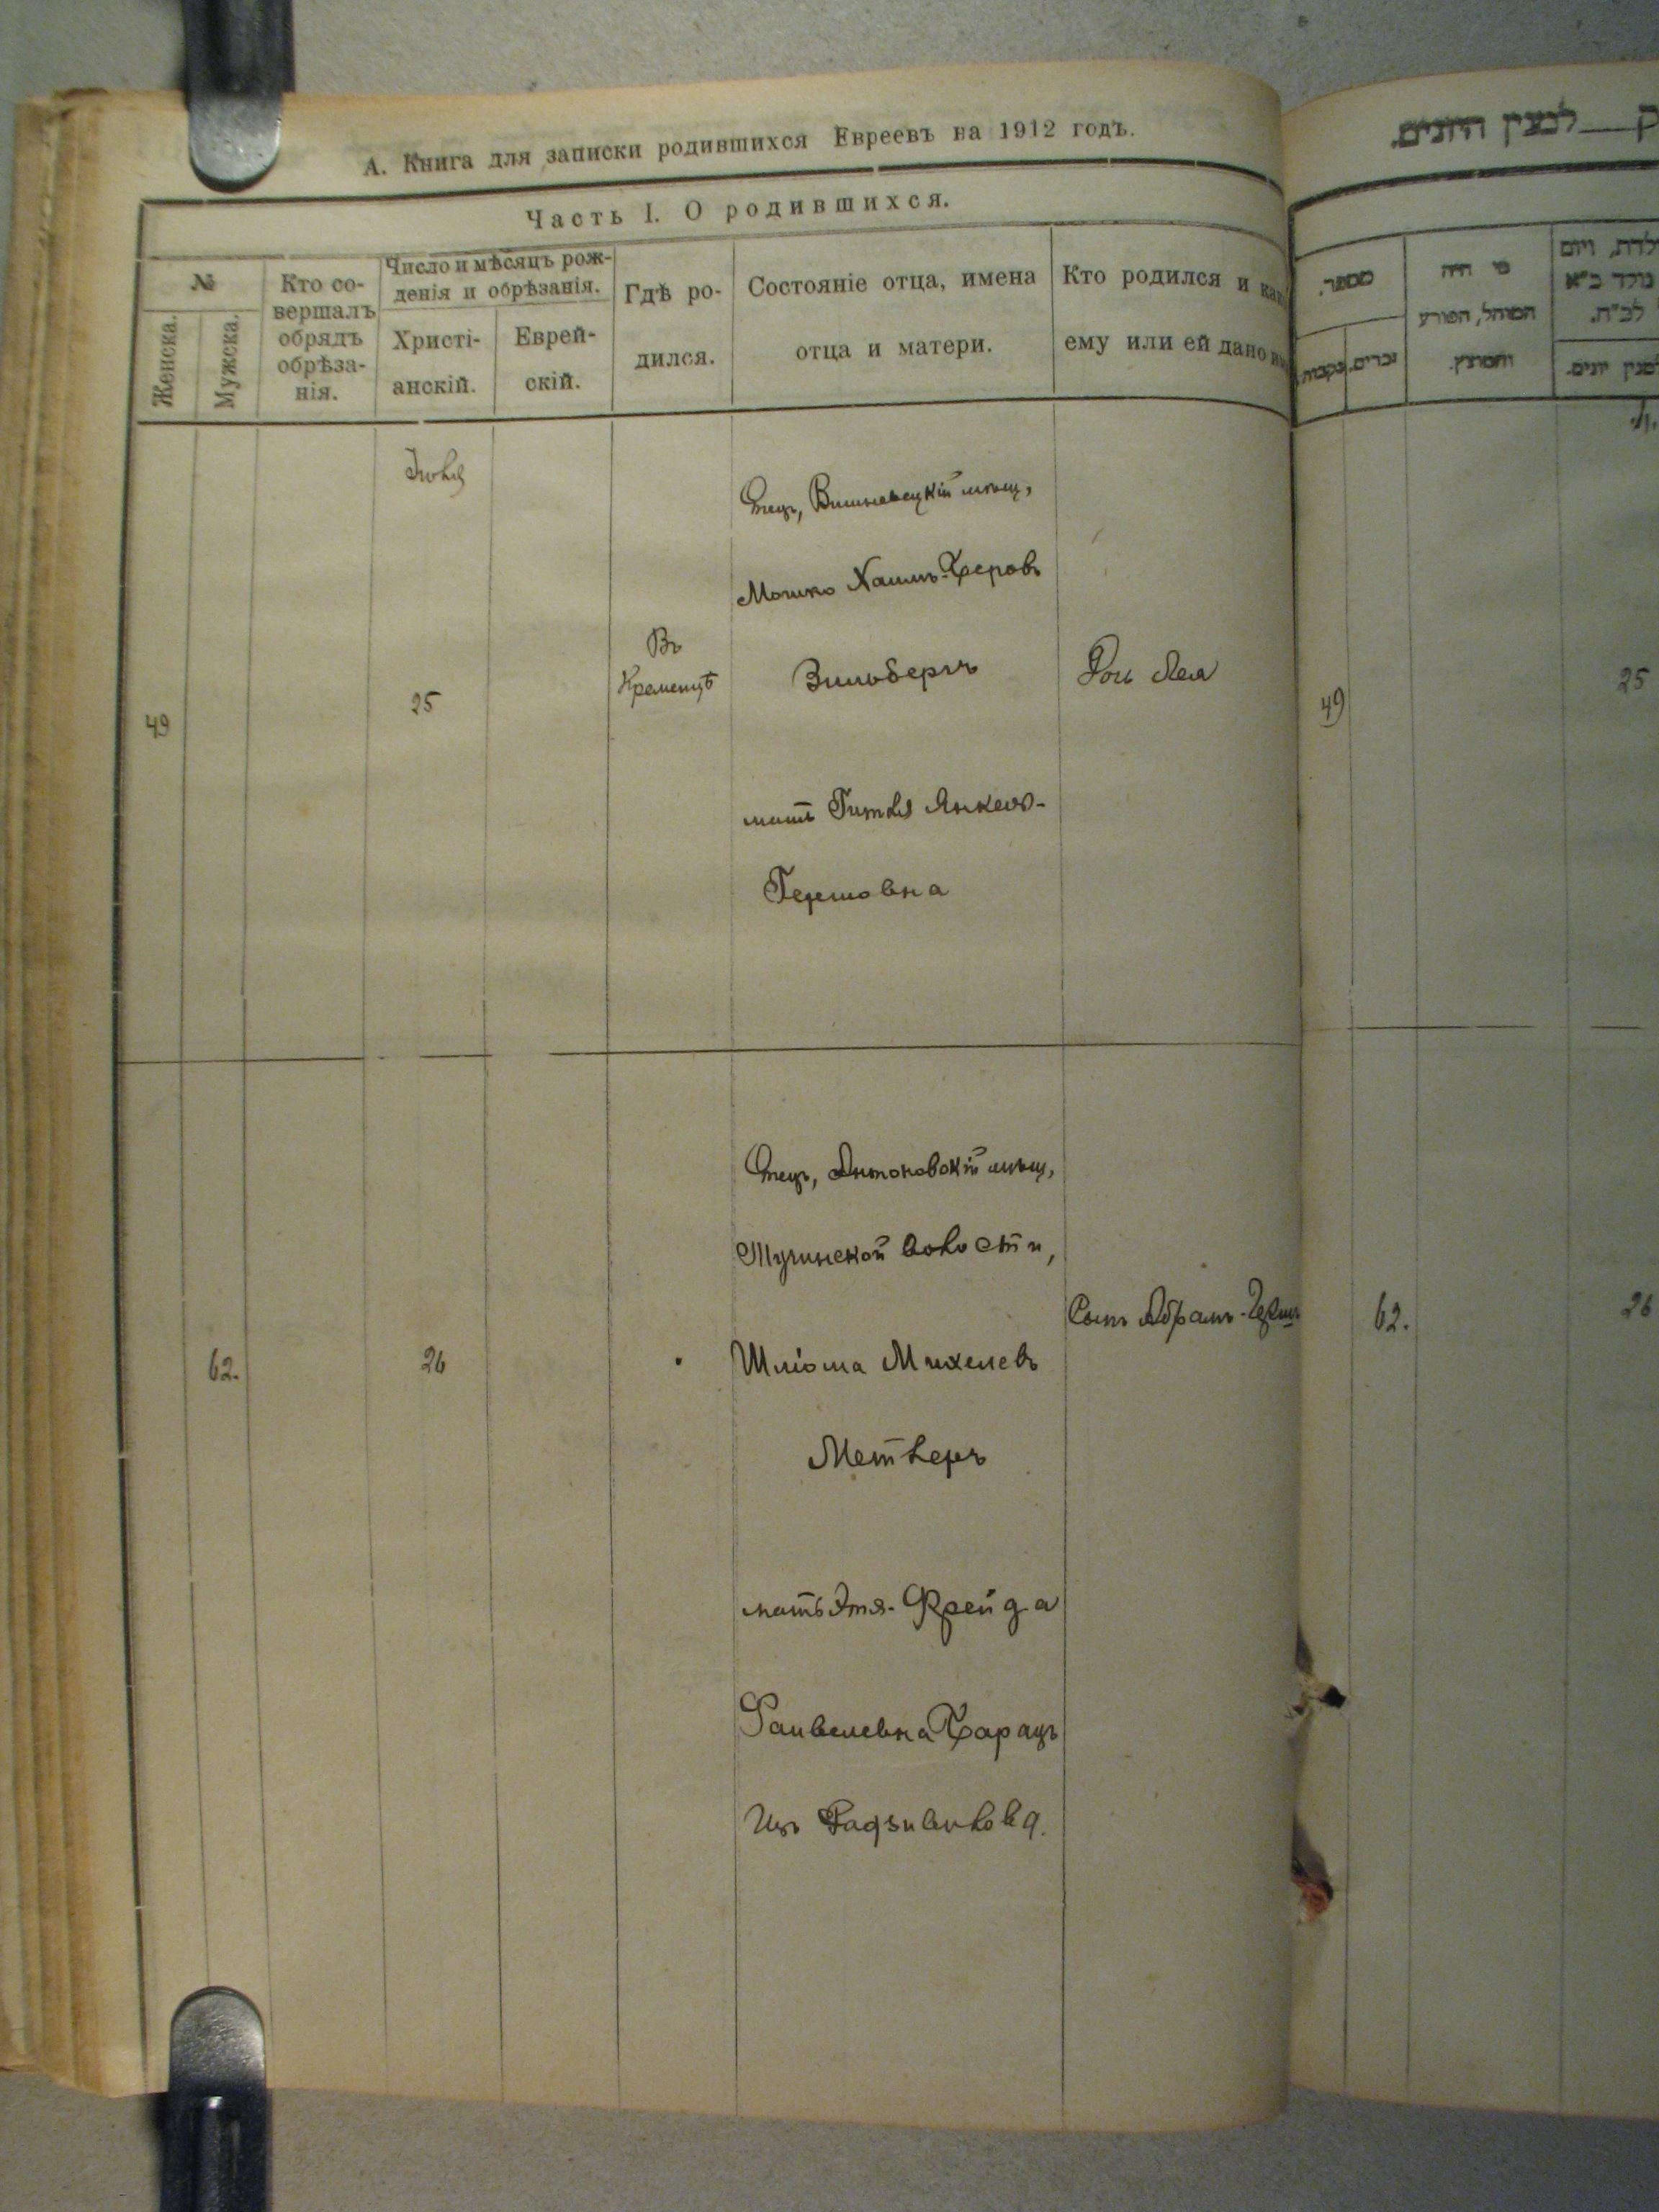 А. Книга для записки родившихся Евреевъ на 1912 годъ.
Часть I. О родившихся.
№
Женска.
Мужска.
Кто со-
вершалъ
обрядъ
обрѣза-
нія.
Число и мѣсяцъ рож-
денія и обрѣзанія.
Христі-
анскій.
Еврей-
скій.
Гдѣ ро-
дился.
Состояніе отца, имена
отца и матери.
Кто родился и как
ему или ей дано
Іюля
49
25
Въ
Кременцѣ
Отецъ, Вишневецкій мѣщ,
Мошко Хаимъ-
Зильбергъ
мать Гитля Янкель-
Гершовна
Дочь Лея
62.
26
Отецъ, Антоновскій мѣщ,
Тучинской волости,
Шліома Михелевъ
Метлеръ
мать Этя-Фрейда
Файвелевна
Изъ Радзивилова.
Сынъ Абрамъ-Гершъ
לבעין היונים.
מספר.
זכרים.
נקבות.
מי היה
המוהל, הפורע
והמוצץ.
לדת, ויום
נולד כ"א
לב"ח.
יונים.
49
25
62.
26